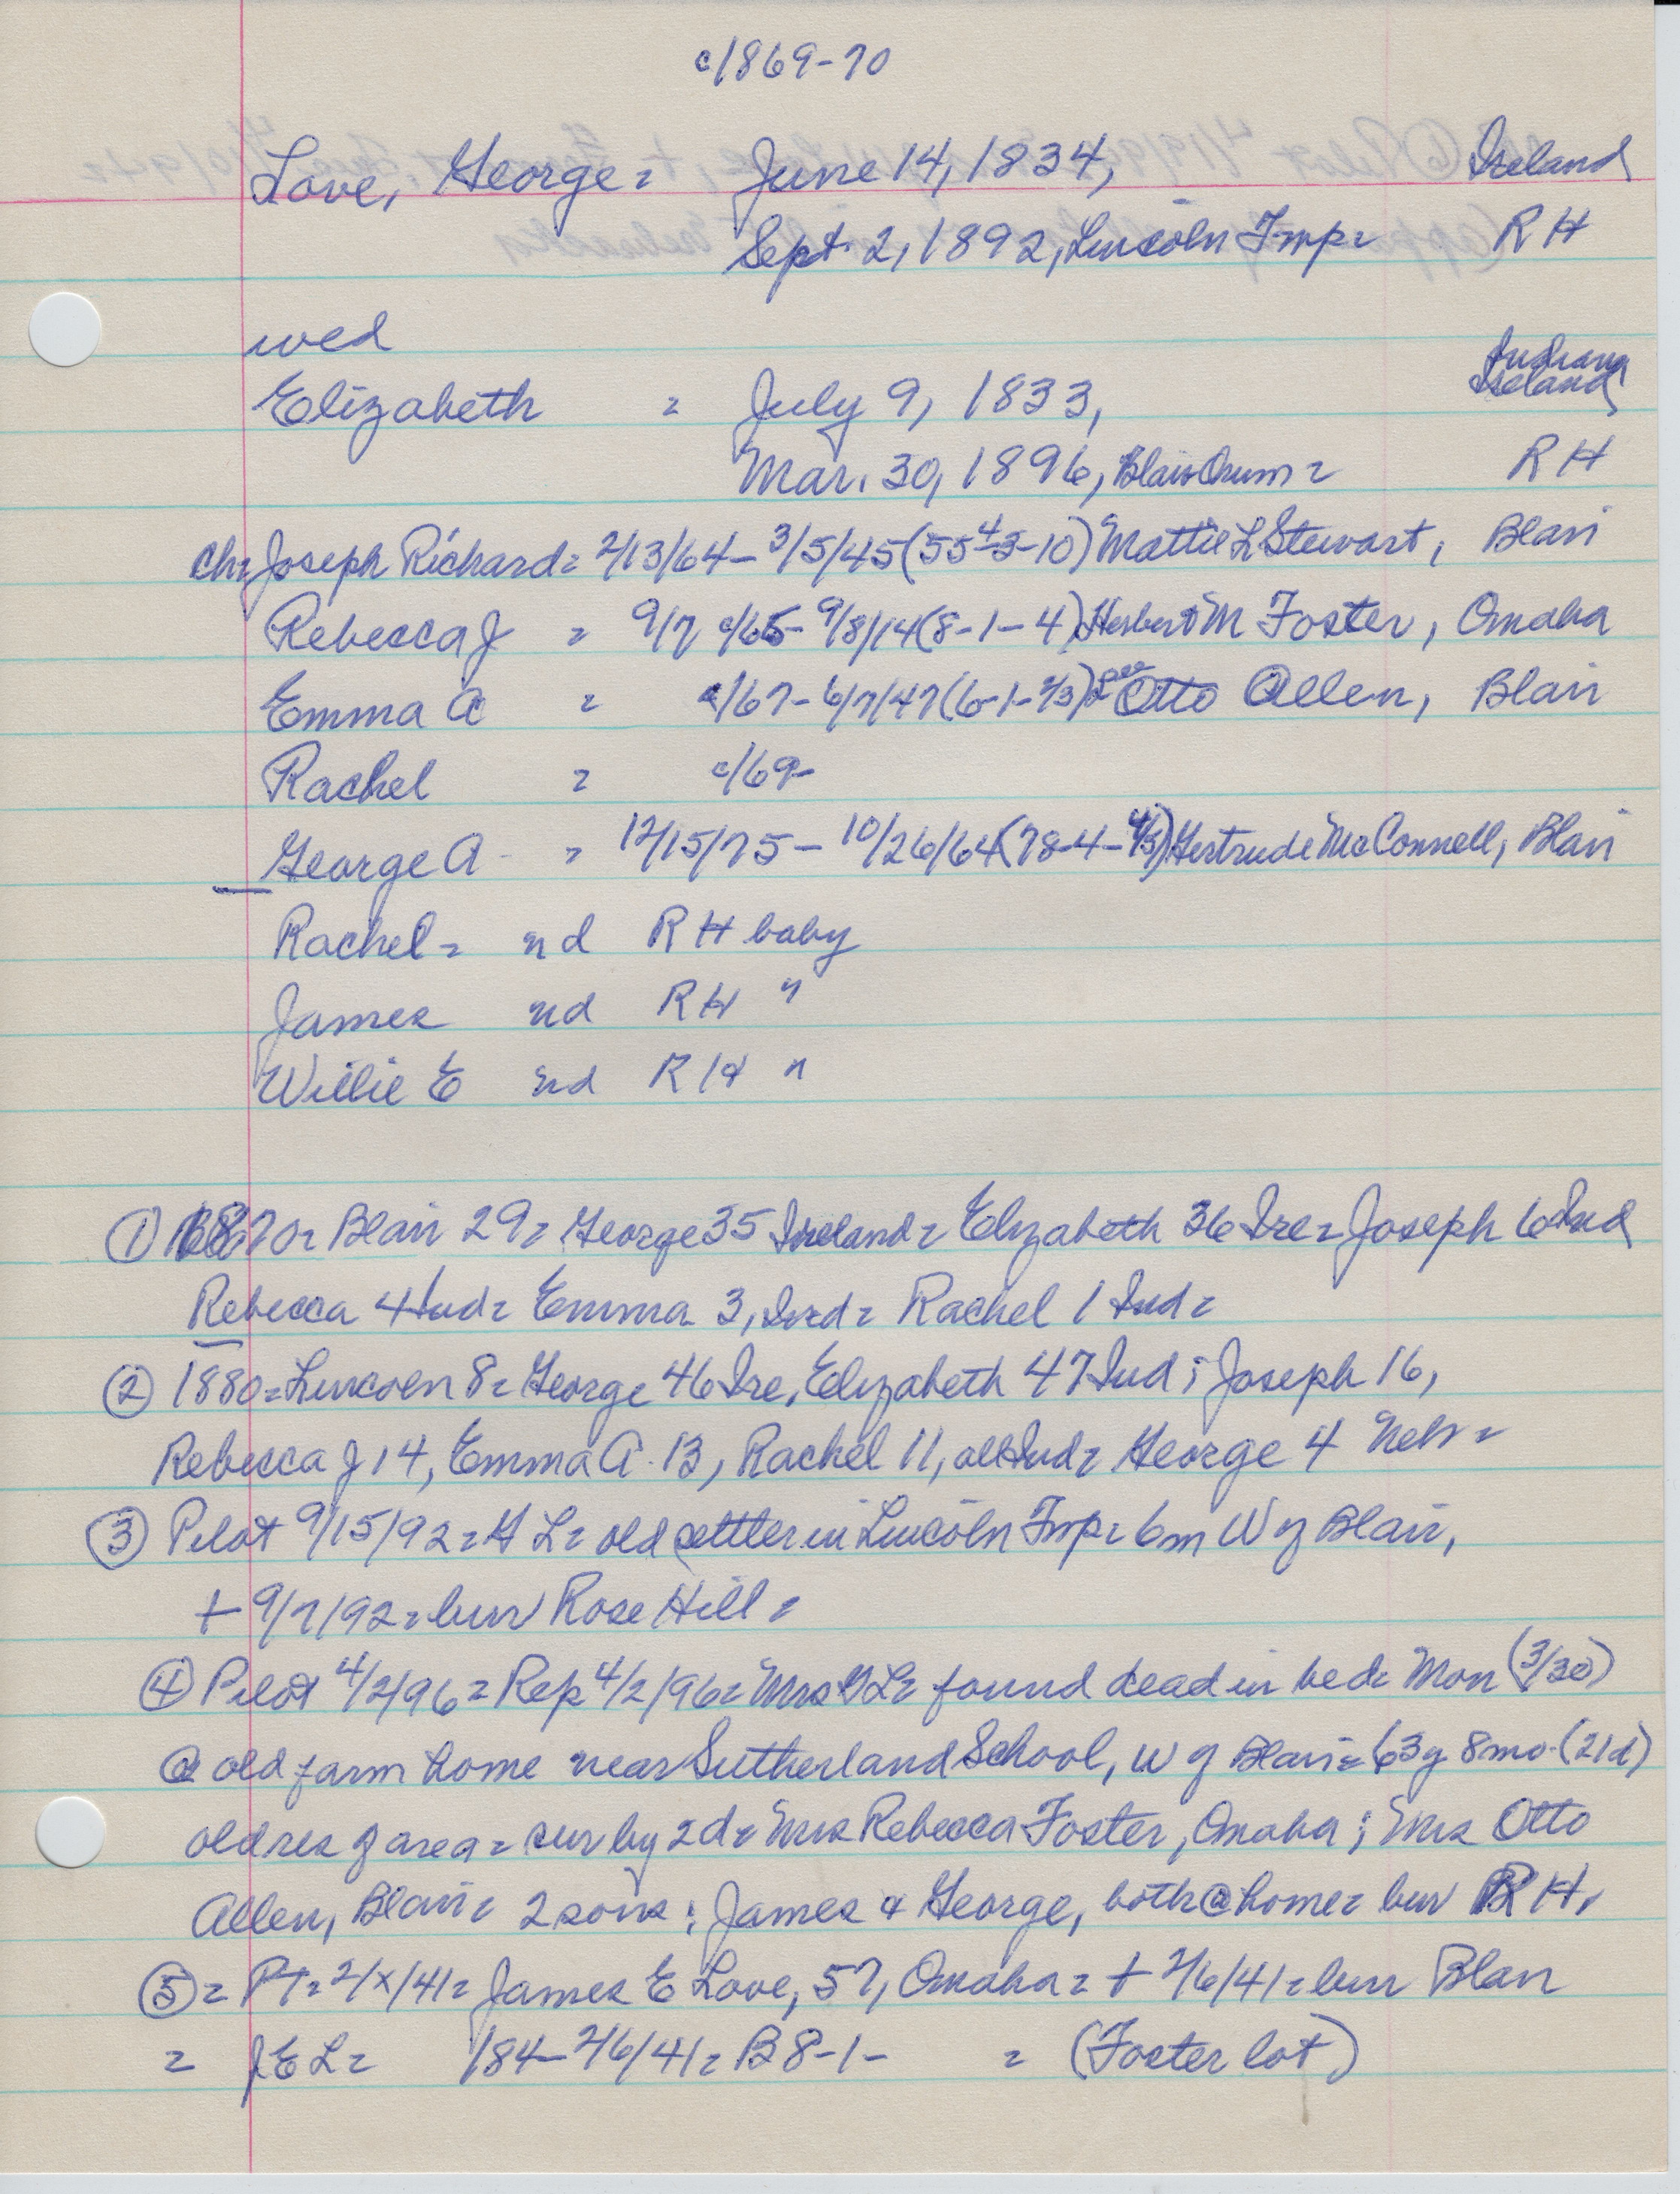 c1869-70
Love, George = June 14, 1834, Ireland
Sept. 2, 1892, Lincoln Twp = RH
wed
Indiana
Elizabeth = July 9, 1833, Ireland
Mar. 30, 1896, Blair Orum = RH
Ch = Joseph Richard = 2/13/64 - 3/5/45 (55-3-10) Mattie L Stewart, Blair
Rebecca J = 9/7 c/65 - 9/8/14 (8-1-4) Herbert M Foster, Omaha
Emma A = c/67 - 6/7/47 (6-1-2/3) Otto Allen, Blair
Rachel = c/69-
George A = 12/15/75 - 10/26/64 (78-4-4/5) Gertrude McConnell, Blair
Rachel = nd RH baby
James nd RH "
Willie E nd RH "
① 1870 = Blair 29 = George 35 Ireland = Elizabeth 36 Ire = Joseph 6 Ind
Rebecca 4 Ind = Emma 3, Ind = Rachel 1 Ind =
② 1880 = Lincoln 8 = George 46 Ire, Elizabeth 47 Ind ; Joseph 16,
Rebecca J 14, Emma A. 13, Rachel 11, all Ind = George 4 Nebr =
③ Pilot 9/15/92 = G L = old settler in Lincoln Twp = 6m W of Blair,
+ 9/7/92 = bur Rose Hill =
④ Pilot 4/2/96 = Rep 4/2/96 = Mrs G L = found dead in bed = Mon (3/30)
@ old farm home near Sutherland School, W of Blair = 63y 8mo. (21d)
old res of area = sur by 2d = Mrs Rebecca Foster, Omaha ; Mrs Otto
Allen, Blair = 2 sons : James & George, both @ home = bur RH,
⑤ = PT = 2/x/41 = James E Love, 57, Omaha = + 2/6/41 = bur Blair
= J E L = 1/84 - 2/6/41 = B 8-1- = (Foster lot)